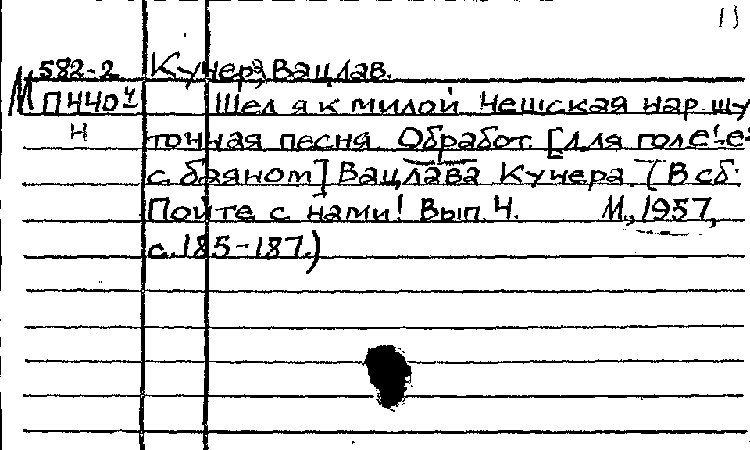 13
582-2 Кучера, Вацлав.
М П440ч Шел я к милой Чешская нар шу
Н точная песня. Обработ. [для голоса
с баяном] Вацлава Кучера. (В сб.
Пойте с нами! Вып. 4. М., 1957,
с. 185-187.)